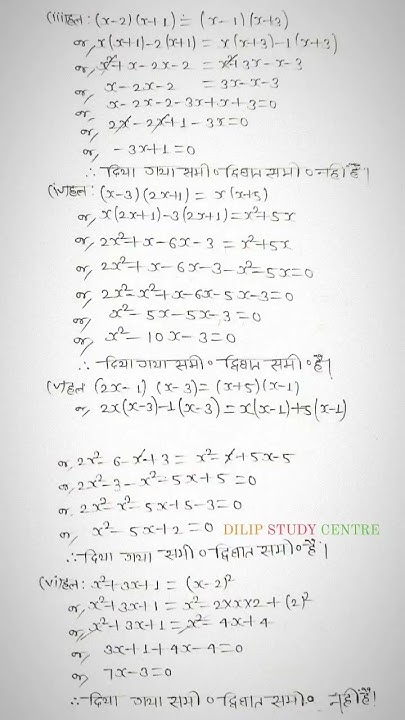 (iii)हल: (x-2)(x+1) = (x-1)(x+3)
या, x(x+1)-2(x+1) = x(x+3)-1(x+3)
या, x²+x-2x-2 = x²+3x-x-3
या, x-2x-2 = 3x-x-3
या, x-2x-2-3x+x+3=0
या, 2x-2x+1-3x=0
या, -3x+1=0
∴ दिया गया समी० द्विघात समी० नहीं है।
(iv)हल: (x-3)(2x+1) = x(x+5)
या, x(2x+1)-3(2x+1)=x²+5x
या, 2x²+x-6x-3 = x²+5x
या, 2x²+x-6x-3-x²-5x=0
या, 2x²-x²+x-6x-5x-3=0
या, x²-5x-5x-3=0
या, x²-10x-3=0
∴ दिया गया समी० द्विघात समी० है।
(v)हल: (2x-1)(x-3)=(x+5)(x-1)
या, 2x(x-3)-1(x-3)=x(x-1)+5(x-1)
या, 2x²-6-x+3 = x²-x+5x-5
या, 2x²-3-x²-5x+5=0
या, 2x²-x²-5x+5-3=0
या, x²-5x+2=0 DILIP STUDY CENTRE
∴ दिया गया समी० द्विघात समी० है।
(vi)हल: x²+3x+1 = (x-2)²
या, x²+3x+1 = x²-2×x×2+(2)²
या, x²+3x+1=x²-4x+4
या, 3x+1+4x-4=0
या, 7x-3=0
∴ दिया गया समी० द्विघात समी० नहीं है।